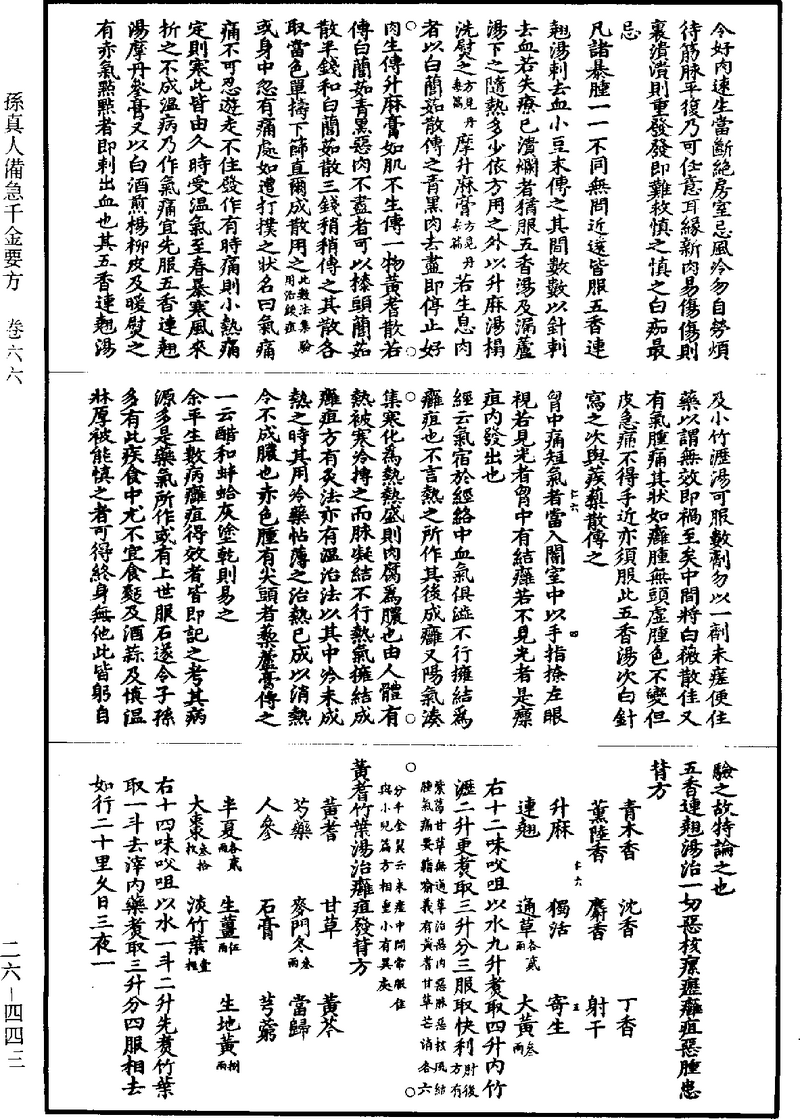 今好肉速生當斷絕房室忌風冷勿自勞煩
待筋脉平復乃可任意耳緣新肉易傷傷則
裏潰潰則重發發即難救慎之慎之白痂最
忌
凡諸暴腫一一不同無問近遠皆服五香連
翹湯刺去血小豆末傅之其間數數以針刺
去血若失療已潰爛者猶服五香湯及漏蘆
湯下之隨熱多少依方用之外以升麻湯榻
洗熨之方見丹毒篇摩升麻膏方見丹毒篇若生息肉
者以白䕡茹散傅之青黑肉去盡即停止好
肉生傅升麻膏如肌不生傅一物黃耆散若
傅白䕡茹青黑惡肉不盡者可以漆頭䕡茹
散半錢和白䕡茹散三錢稍稍傅之其散各
取當色單擣下篩直爾成散用之此數法集驗用治緩疽
或身中忽有痛處如遭打撲之狀名曰氣痛
痛不可忍遊走不住發作有時痛則小熱痛
定則寒此皆由久時受溫氣至春暴寒風來
折之不成溫病乃作氣痛宜先服五香連翹
湯摩丹參膏又以白酒煎楊柳皮及暖熨之
有赤氣點點者即刺出血也其五香連翹湯
及小竹瀝湯可服數劑勿以一劑未瘥便住
藥以謂無效即禍至矣中間將白薇散佳又
有氣腫痛其狀如癰腫無頭虛腫色不變但
皮急痛不得手近亦須服此五香湯次白針
寫之次與蒺藜散傅之
胷中痛短氣者當入闇室中以手指捺左眼
視若見光者胷中有結癰若不見光者是瘭
疽內發出也
經云氣宿於經絡中血氣俱澁不行擁結爲
癰疽也不言熱之所作其後成癰又陽氣湊
集寒化為熱熱盛則肉腐爲膿也由人體有
熱被寒冷搏之而脉凝結不行熱氣擁結成
癰疽方有灸法亦有溫治法以其中冷未成
熱之時其用冷藥帖薄之治熱已成以消熱
令不成膿也赤色腫有尖頭者藜蘆膏傅之
一云醋和蚌蛤灰塗乾則易之
余平生數病癰疽得效者皆即記之考其病
源多是藥氣所作或有上世服石遂令子孫
多有此疾食中尤不宜食麪及酒蒜及慎溫
牀厚被能慎之者可得終身無他此皆躬自
驗之故特論之也
五香連翹湯治一切惡核瘰癧癰疽惡腫患
皆方
青木香 沈香 丁香
薰陸香 麝香 射干
升麻 獨活 寄生
連翹 通草各貳兩 大黃叁兩
右十二味㕮咀以水九升煑取四升內竹
瀝二升更煑取三升分三服取快利肘後方有
紫葛甘草無通草治惡肉惡脉惡核風結
腫氣痛要籍喻義有黃耆甘草芒消各六
分千金翼云未産中間常服佳
與小兒篇方相重小有異灰
黃耆竹葉湯治癰疽發背方
黃耆 甘草 黃芩
芍藥 麥門冬叁兩 當歸
人參 石膏 芎藭
半夏各貳兩 生薑伍兩 生地黃捌兩
大棗叁拾枚 淡竹葉壹握
右十四味㕮咀以水一斗二升先煑竹葉
取一斗去滓內藥煑取三升分四服相去
如行二十里久日三夜一
孫真人備急千金要方 卷六六
二六－四四三